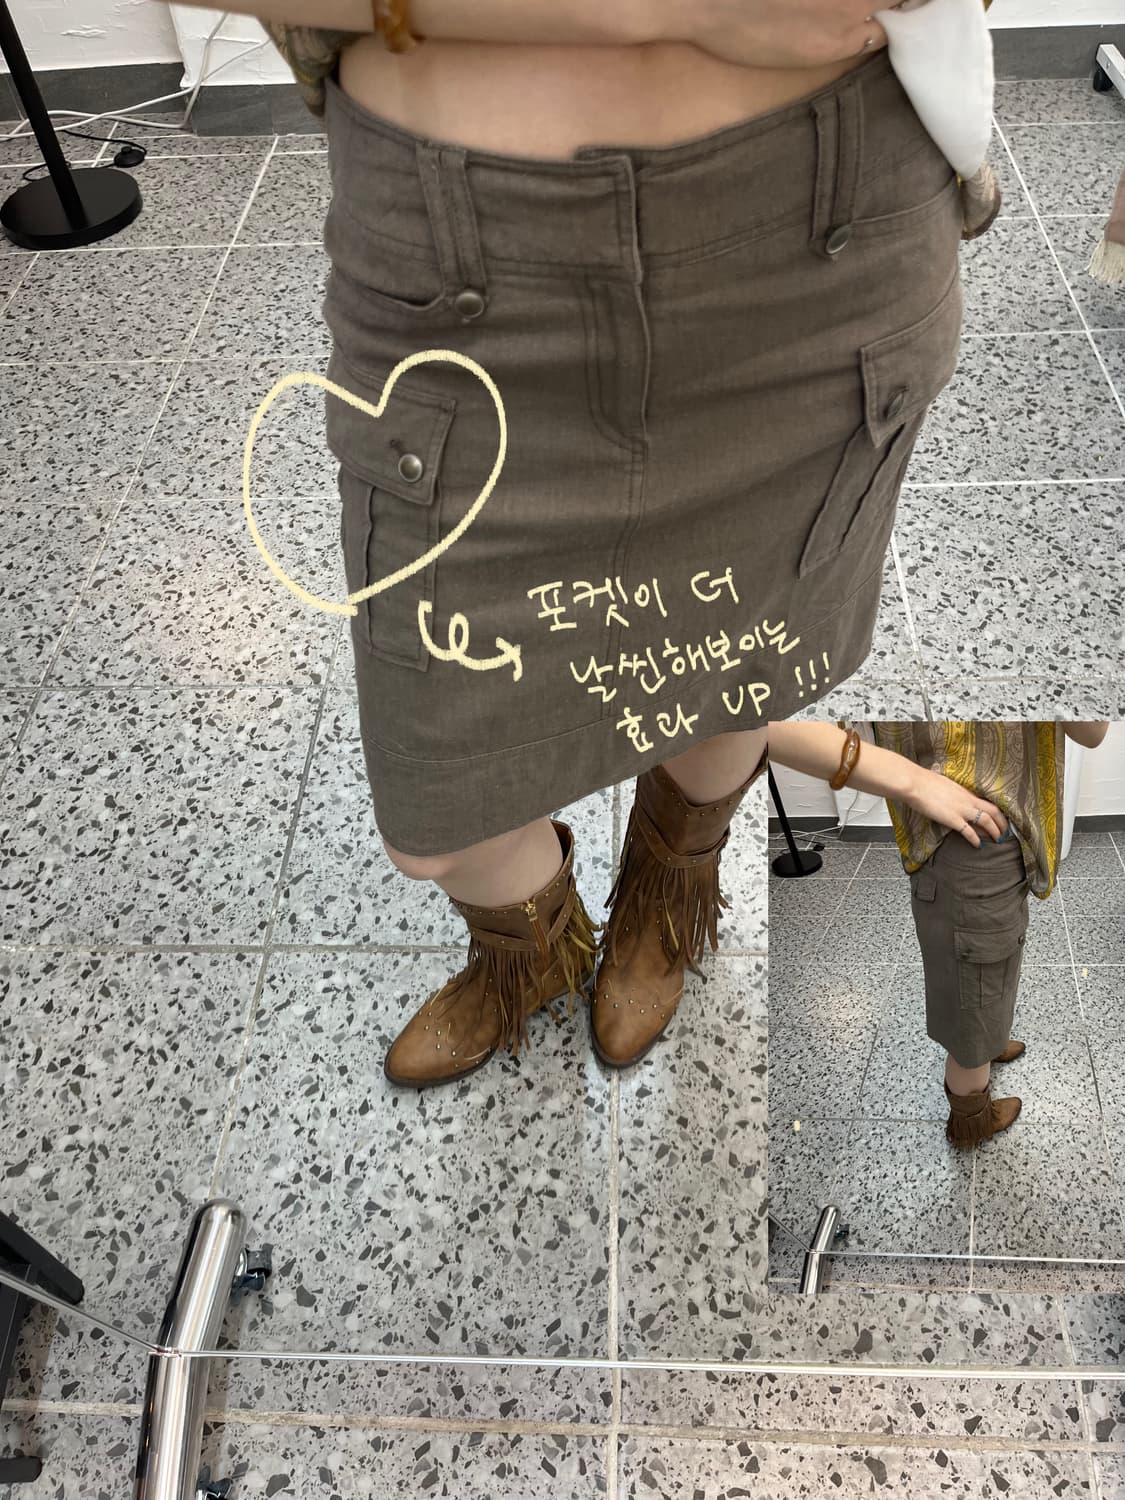 포켓이 더
날씬해보이는
효과 UP !!!